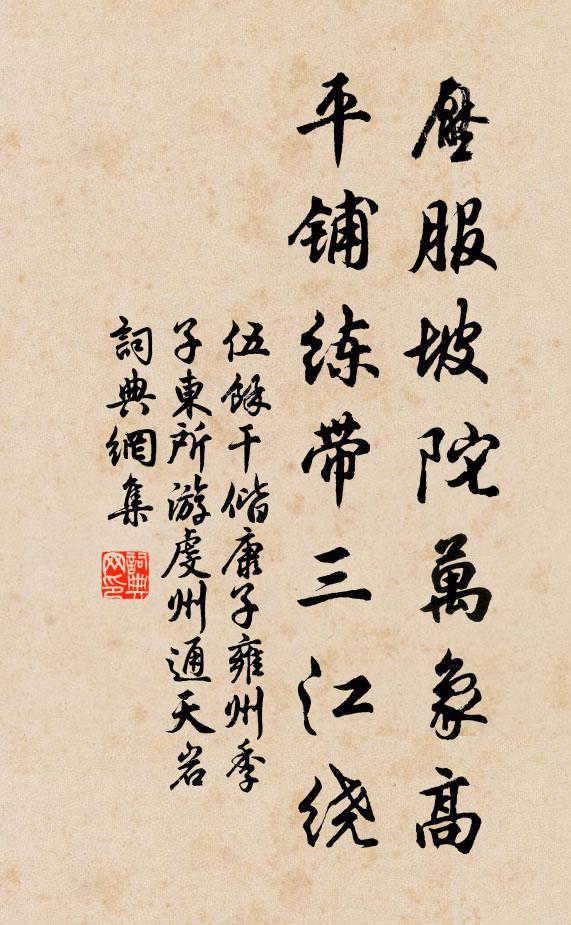 壓服坡陀萬象高
平铺练带三江绕
伍餘干偕康子雍州季
子東所游虔州通天岩
詞典網集
詞典
网印